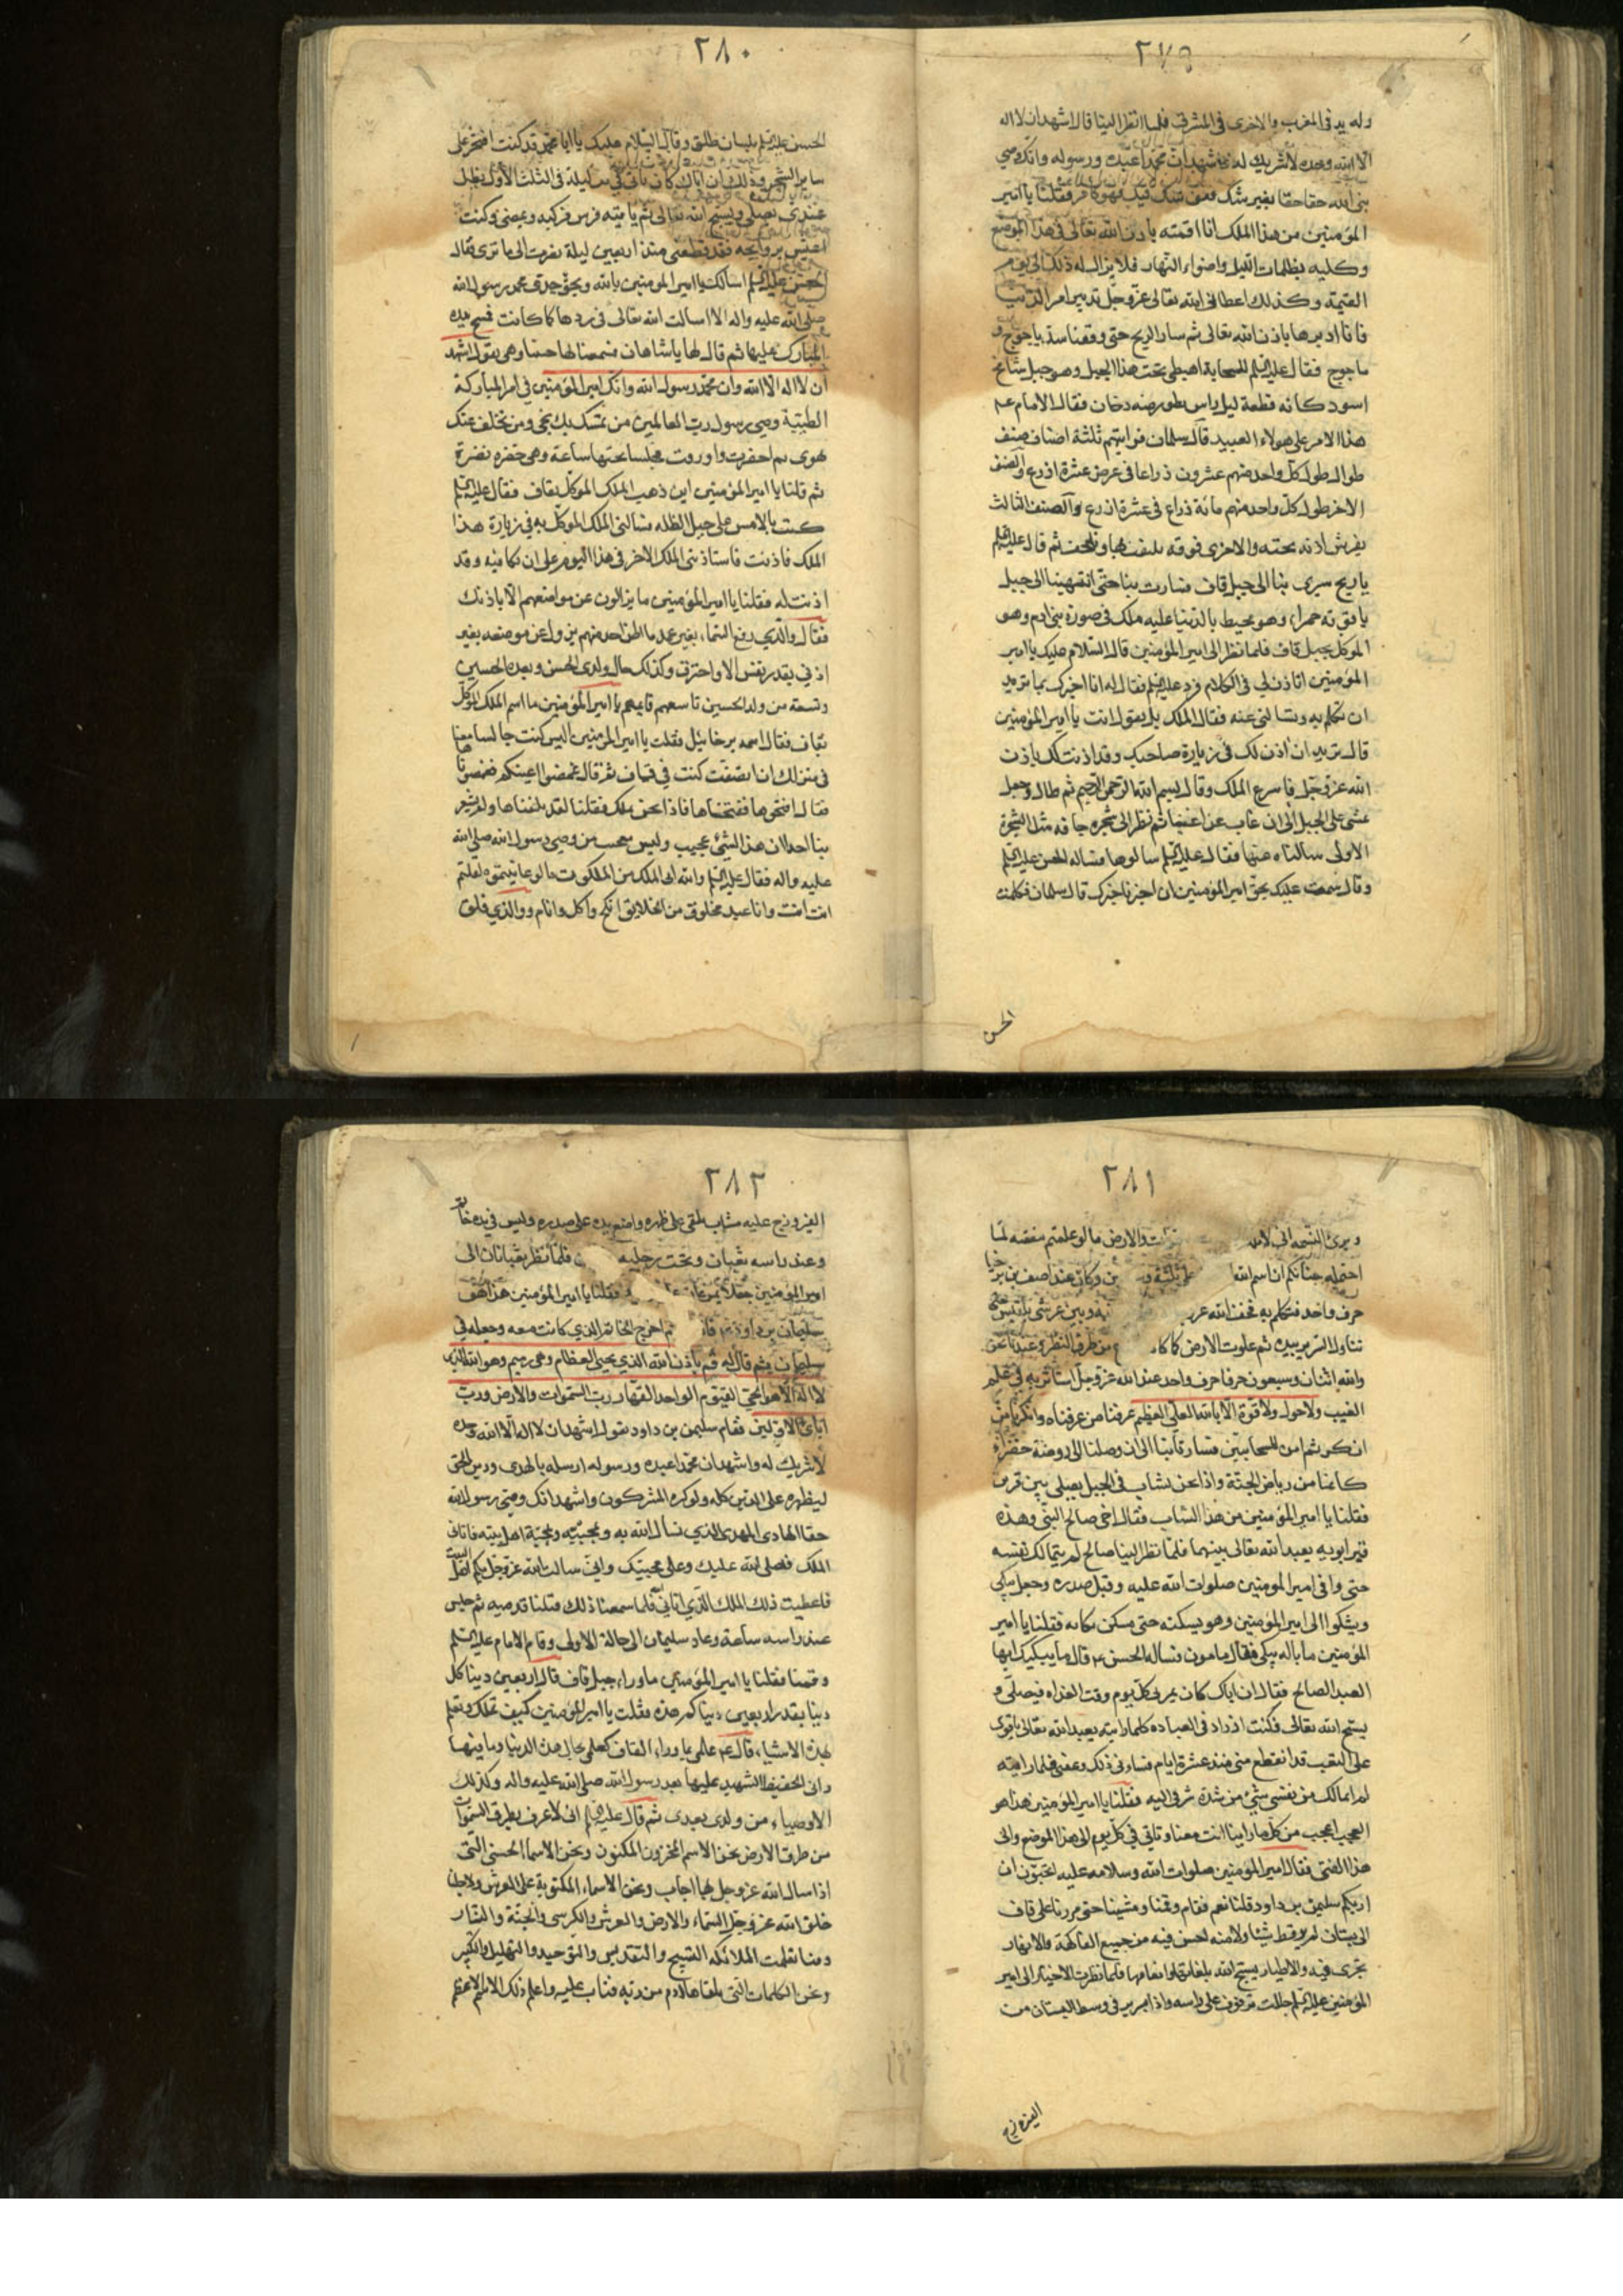 ٢٧٩
وله يد فى المغرب والاخرى فى المشرق فلما نظر الينا قال اشهد ان لا اله
الا الله وحده لا شريك له واشهد ان محمدا عبده ورسوله وانك وصى
نبى الله حقا حقا بغير شك فمن شك فيك فهو كافر فقلنا يا امير
المؤمنين من هذا الملك انا اقمته باذن الله تعالى فى هذا الموضع
وكليه بظلمات الليل واضواء النهار فلا يزال له ذلك الى يوم
القيمة وكذلك اعطانى الله تعالى عز وجل تدبير امر الدنيا
فانا ادبرها باذن الله تعالى ثم سار الريح حتى وقفنا سد ياجوج و
ماجوج فقال عليه السلم للسحابة اهبطى تحت هذا الجبل وهو جبل شامخ
اسود كانه قطعة ليل دخان فقال الامام عم
هذا الامر على هولاء العبيد قال سلمان فرايتهم ثلثة اصناف صنف
طوال طول كل واحد منهم عشرون ذراعا فى عرض عشرة اذرع والصنف
الاخر طول كل واحد منهم مائة ذراع فى عشرة اذرع والصنف الثالث
يفرش اذنه تحته والاخرى فوقه ثم قال عليه السلم
يا ريح سيرى بنا الى جبل قاف فسارت بنا حتى انتهينا الى جبل
ياقوتة حمراء وهو محيط بالدنيا عليه ملك فى صورة بنى ادم وهو
الموكل بجبل قاف فلما نظر الى امير المؤمنين قال السلام عليك يا امير
المؤمنين اتاذن لى فى الكلام فرد عليه السلم فقال له انا اخبرك بما تريد
ان تتكلم به وتسالنى عنه فقال الملك بل يقول انت يا امير المؤمنين
قال تريد ان اذن لك فى زيارة صاحبك وقد اذنت لك باذن
الله عز وجل فاسرع الملك وقال بسم الله الرحمن الرحيم ثم طال وجعل
يمشى على الجبل الى ان غاب عن اعيننا ثم نظر الى شجرة جافة مثل الشجرة
الاولى سالناه عنها فقال عليه السلم سالوها فساله الحسن عليه السلم
وقال سمعت عليك بحق امير المؤمنين ان اخبرنا خبرك قال سلمان فكلمت
الحسن
٢٨٠
الحسن عليه السلم بلسان طلق وقال السلام عليك يا ابا محمد قد كنت افتخر على
ساير الشجر وذلك ان اباك كان ياتى فى كل ليلة فى الثلث الاول يظل
عندى يصلى ويسبح الله تعالى ثم ياتيه فرس فركبه ويمضى وكنت
اعيش بروايحه فقد قطعنى منذ اربعين ليلة فصرت الى ما ترى فقال
الحسن عليه السلم اسالك يا امير المومنين بالله وبحق جدى محمد رسول الله
صلى الله عليه واله الا سالت الله تعالى فى ردها كما كانت فمسح يده
المبارك عليها ثم قال لها يا شاهان فسمعنا لها حسا وهى يقول اشهد
ان لا اله الا الله وان محمد رسول الله وانك امير المؤمنين فى امر المباركة
الطيبة وصى رسول رب العالمين من تمسك بك نجى ومن تخلف عنك
هوى ثم اخضرت واورقت فجلسنا تحتها ساعة وهى خضره نضرة
ثم قلنا يا امير المؤمنين اين ذهب الملك الموكل بقاف فقال عليه السلم
كنت بالامس على جبل الظلمه فسالنى الملك الموكل به فى زيارة هذا
الملك فاذنت فاستاذننى الملك الاخر فى هذا اليوم على ان يكافيه وقد
اذنت له فقلنا يا امير المؤمنين ما يزالون عن مواضعهم الا باذنك
فقال والذى رفع السماء بغير عمد ما اظن احد منهم يزول عن موضعه بغير
اذنى بقدر نفس الا واحترق وكذلك حال ولدى الحسن وبعده الحسين
وتسعة من ولد الحسين تاسعهم قايمهم يا امير المؤمنين ما اسم الملك الموكل
بقاف فقال اسمه برخائيل فقلت يا امير المؤمنين اليس كنت جالسا معنا
فى منزلك انا كنت فى قاف فقال غمضوا اعينكم فغمضناها
فقال افتحوها ففتحناها فاذا نحن بملك فقلنا لقد بلغناها ولم يشعر
بنا احد ان هذا الشئ عجيب وليس بعجب من وصى رسول الله صلى الله
عليه واله فقال عليه السلم والله انى املك من الملكوت ما لو عاينتموه لقلتم
انت انت وانا عبد مخلوق من الخلايق انكح واكل وانام ووالذى فلق
٢٨١
وبرئ النسمة السموات والارض ما لو علمتم بعضه لما
احتمله جنانكم ان اسم الله على ثلثة و وكان عند اصف بن برخيا
حرف واحد فتكلم به فخسف الله عز بينه وبين عرش بلقيس حتى
تناول السرير بيده ثم علوت الارض كما كا من طرف النظر وعندنا نحن
والله اثنان وسبعون حرفا حرف واحد عند الله عز وجل استأثر به فى علم
الغيب ولا حول ولا قوة الا بالله العلى العظيم عرفنا من عرفناه وانكرنا من
انكر ثم امر السحابتين فسار تابنا الى ان وصلنا الى روضة خضراء
كانها من رياض الجنة واذا نحن بشاب فى الجبل يصلى بين قبرين
فقلنا يا امير المؤمنين من هذا الشاب فقال اخى صالح النبى وهذه
قبر ابويه يعبد الله تعالى بينهما فلما نظر الينا صالح لم يتمالك نفسه
حتى وافى امير المومنين صلوات الله عليه وقبل صدره وجعل يبكى
ويشكوا الى امير المؤمنين وهو يسكنه حتى سكن بكائه فقلنا يا امير
المؤمنين ما باله يبكى فقال ما مون فساله الحسن عم قال ما يبكيك ايها
العبد الصالح فقال ان اباك كان يمر بى كل يوم وقت الغداه فيصلى و
يسبح الله تعالى فكنت ازداد فى العباده كلما رايته يعبد الله تعالى باقوى
على التعب قد انقطع منى منذ عشرة ايام فساءنى ذلك وغمنى فلما رايته
لم املك من نفسى شئ من شدة شوقى اليه فقلنا يا امير المؤمنين هذا هو
العجب اعجب من كل ما راينا انت معنا وتاتى فى كل يوم الى هذا الموضع والى
هذا الفتى فقال امير المؤمنين صلوات الله وسلامه عليه اتحبون ان
اريكم سليمن بن داود قلنا نعم فقام وقمنا ومشينا حتى مررنا على قاف
الى بستان لم ير قط شيئا ولا منه احسن فيه من جميع الفاكهة والانهار
تجرى فيه والاطيار يسبح الله بلغاتها فلما نظرت الاطيار الى امير
المؤمنين عليه السلم جعلت ترفرف على راسه واذا سرير فى وسط البستان من
الفيروزج
٢٨٢
الفيروزج عليه شاب ملقى على ظهره واضع يده على صدره وليس فى يده خاتم
وعند راسه ثعبان وتحت رجليه فلما نظر ثعبانان الى
امير المؤمنين جعلا يمرغان فقلنا يا امير المؤمنين هذا هو
سليمان بن داود ثم اخرج الخاتم الذى كانت معه وجعله فى
سليمان ثم قال له قم باذن الله الذى يحيى العظام وهى رميم وهو الله الذى
لا اله الا هو الحى القيوم الواحد القهار رب السموات والارض ورب
ابائى الاولين فقام سليمن بن داود يقول اشهد ان لا اله الا الله وحده
لا شريك له واشهد ان محمدا عبده ورسوله ارسله بالهدى ودين الحق
ليظهره على الدين كله ولو كره المشركون واشهد انك وصى رسول الله
حقا الهادى المهدى الذى نسال الله به وبمحبته ومحبة اهل بيته فاتانى
الملك فصلى الله عليك وعلى محبيك وانى سالت بالله عز وجل بكم اهل البيت
فاعطيت ذلك الملك الذى اتانى فلما سمعنا ذلك قبلنا قدميه ثم جلس
عند راسه ساعة وعاد سليمان الى حالة الاولى وقام الامام عليه السلم
وقمنا فقلنا يا امير المؤمنين ما وراء جبل قاف قال اربعين دنيا كل
دنيا بقدر اربعين دنياكم هذه فقلت يا امير المؤمنين كيف تملك وتعلم
بهذه الاشياء قال عم علمى بما وراء القاف كعلمى بحال هذه الدنيا وما فيها
وانى الحفيظ الشهيد عليها بعد رسول الله صلى الله عليه واله وكذلك
الاوصياء من ولدى بعدى ثم قال عليه السلم انى لاعرف بطرق السموات
من طرق الارض نحن الاسم المخزون المكنون ونحن الاسما الحسنى التى
اذا سال الله عز وجل بها اجاب ونحن الاسماء المكتوبة على العرش ولاجلنا
خلق الله عز وجل السماء والارض والعرش والكرسى والجنة والنار
ومنا تعلمت الملائكه التسبيح والتقديس والتوحيد والتهليل والتكبير
ونحن الكلمات التى تلقاها ادم من ربه فتاب عليه واعلم ذلك الاسم الاعظم